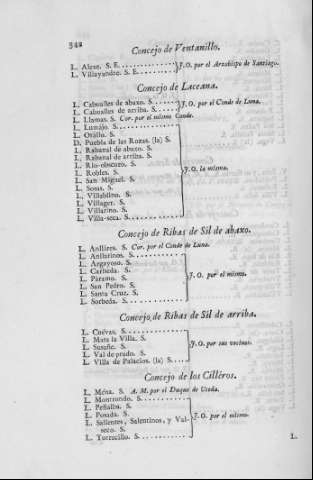 342
Concejo de Ventanillo.
L. Aleze. S. E.
L. Villayandre. S. E. J. O. por el Arzobispo de Santiago.
Concejo de Laceana.
L. Caboalles de abaxo. S.
L. Caboalles de arriba. S. J. O. por el Conde de Luna.
L. Llamas. S. Cor. por el mismo Conde.
L. Lumajo. S.
L. Orállo. S.
D. Puebla de las Rozas. (la) S.
L. Rabanal de abaxo. S.
L. Rabanal de arriba. S.
L. Rio-obscuro. S.
L. Robles. S.
L. San Miguel. S.
L. Sosas. S.
L. Villablino. S.
L. Villager. S.
L. Villarino. S.
L. Villa-seca. S.
J. O. la misma.
Concejo de Ribas de Sil de abaxo.
L. Anllires. S. Cor. por el Conde de Luna.
L. Anllarinos. S.
L. Argayoso. S.
L. Carbeda. S.
L. Páramo. S.
L. San Pedro. S.
L. Santa Cruz. S.
L. Sorbeda. S.
J. O. por el mismo.
Concejo de Ribas de Sil de arriba.
L. Cuévas. S.
L. Mata la Villa. S.
L. Susañe. S.
L. Val de prado. S.
L. Villa de Palacios. (la) S.
J. O. por sus vecinos.
Concejo de los Cilléros.
L. Ména. S. A. M. por el Duque de Uceda.
L. Montrondo. S.
L. Peñalba. S.
L. Posada. S.
L. Salientes, Salentinos, y Val-
seco. S.
L. Torrecillo. S.
J. O. por el mismo.
L.